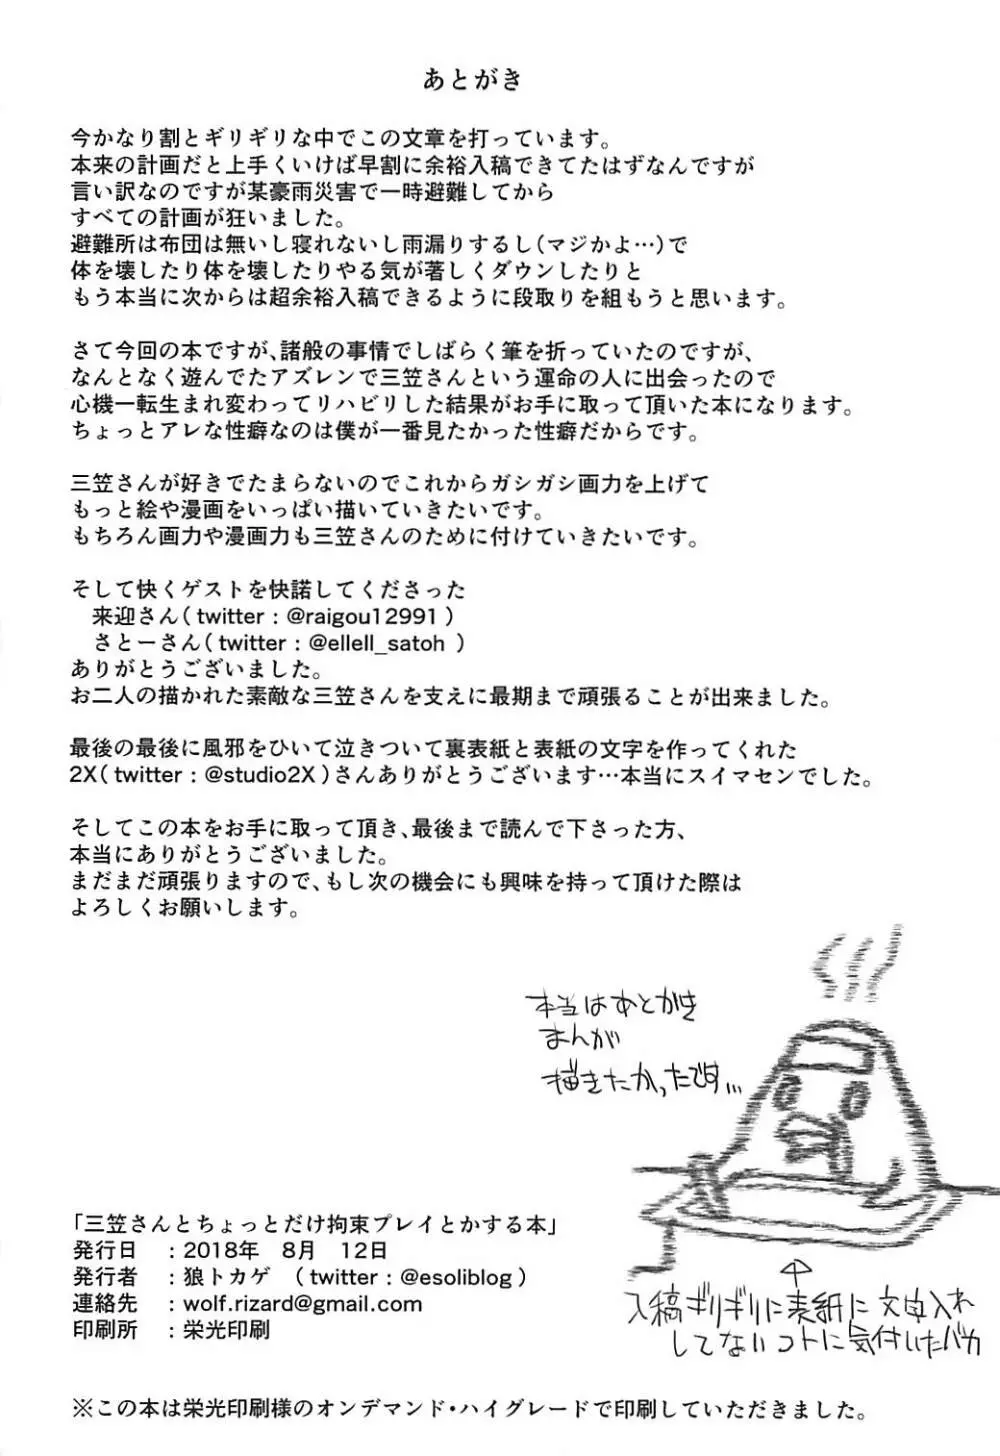 あとがき
今かなり割とギリギリな中でこの文章を打っています。
本来の計画だと上手くいけば早割に余裕入稿できてたはずなんですが
言い訳なのですが某豪雨災害で一時避難してから
すべての計画が狂いました。
避難所は布団は無いし寝れないし雨漏りするし（マジかよ…）で
体を壊したり体を壊したりやる気が著しくダウンしたりと
もう本当に次からは超余裕入稿できるように段取りを組もうと思います。
さて今回の本ですが、諸般の事情でしばらく筆を折っていたのですが、
なんとなく遊んでたアズレンで三笠さんという運命の人に出会ったので
心機一転生まれ変わってリハビリした結果がお手に取って頂いた本になります。
ちょっとアレな性癖なのは僕が一番見たかった性癖だからです。
三笠さんが好きでたまらないのでこれからガシガシ画力を上げて
もっと絵や漫画をいっぱい描いていきたいです。
もちろん画力や漫画力も三笠さんのために付けていきたいです。
そして快くゲストを快諾してくださった
来迎さん（twitter：@raigou12991）
さとーさん（twitter：@ellell_satoh ）
ありがとうございました。
お二人の描かれた素敵な三笠さんを支えに最期まで頑張ることが出来ました。
最後の最後に風邪をひいて泣きついて裏表紙と表紙の文字を作ってくれた
2X（twitter：@studio2X）さんありがとうございます…本当にスイマセンでした。
そしてこの本をお手に取って頂き、最後まで読んで下さった方、
本当にありがとうございました。
まだまだ頑張りますので、もし次の機会にも興味を持って頂けた際は
よろしくお願いします。
本当はあとがき
まんが
描きたかったです...
「三笠さんとちょっとだけ拘束プレイとかする本」
発行日　：2018年　8月　12日
発行者　：狼トカゲ　（twitter：@esoliblog）
連絡先　：wolf.rizard@gmail.com
印刷所　：栄光印刷
入稿ギリギリに表紙に文字入れ
してないコトに気付いたバカ
※この本は栄光印刷様のオンデマンド・ハイグレードで印刷していただきました。